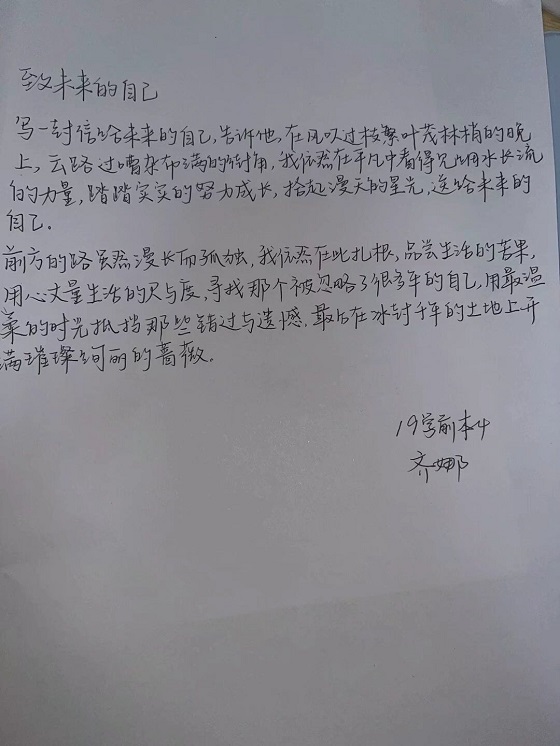 致未来的自己
写一封信给未来的自己,告诉他,在风吹过枝繁叶茂林梢的晚
上,云路过嘈杂布满的街角,我依然在平凡中看得见细水长流
的力量,踏踏实实的努力成长,拾起漫天的星光,送给未来的
自己.
前方的路虽然漫长而孤独,我依然在此扎根,品尝生活的苦果,
用心丈量生活的尺与度,寻找那个被忽略了很多年的自己,用最温
柔的时光抵挡那些错过与遗憾.最后在冰封千年的土地上开
满璀璨绚丽的蔷薇。
19学前本4
齐娜